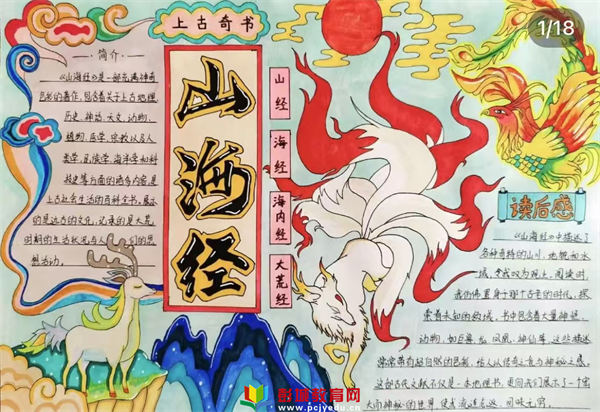 1/18
上古奇书
山海经
简介
《山海经》是一部充满神奇
色彩的著作,包含着关于上古地理、
历史、神动、天文、动物、
植物、医学、宗教以名人
类学、民族学、海洋学和科
技史等方面的诸多内容,是
上古社会生活的百科全书,展示
的是远古的文化,记录的是大荒
时期的生活状况与人们的思
想活动。
山经
海经
海内经
大荒经
读后感
《山海经》中描述了
各种奇特的山川、地貌和水
域,令我叹为观止。阅读时,
我仿佛置身于那个古老的时代,探
索着未知的领域。书中包含着大量神话
动物,如巨兽、凤凰、神仙等,这些描述
常常带有超自然的色彩,给人以传奇之意与神秘之感。
这部古代文献不仅是一本地理书,更向我们展示了一个宏
大而神秘的世界,使我流连忘返、回味无穷。
彭城教育网
www.pcjyedu.cn